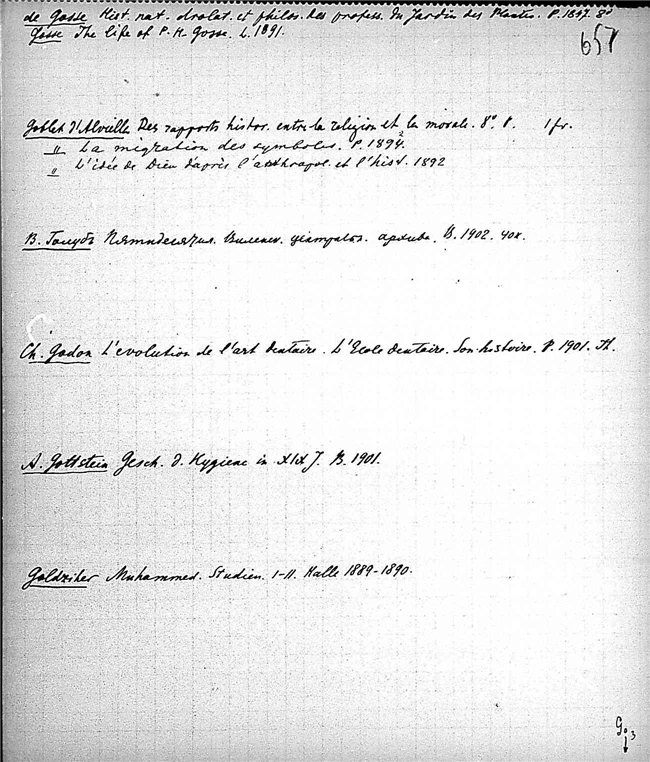 de Gosse Hist. nat. drolat. et philos. des profess. du Jardin des Plantes. P. 1847. 8°
Gosse The life of P. H. Gosse. L. 1891.
657
Goblet d'Alviella Des rapports histor. entre la religion et la morale. 8°. P. 1 fr.
" La migration des symboles. P. 1892.
" L'idée de Dieu d'après l'anthropol. et l'hist. 1892
В. Голубъ Пятидесятил. Виленск. централь. архива. В. 1902. 40к.
Ch. Godon L'evolution de l'art dentaire. L'Ecole dentaire. Son histoire. P. 1901. Th.
A. Gottstein Gesch. d. Hygiene in XIX J. B. 1901.
Goldziher Muhammed. Studien. I-II. Halle 1889-1890.
G. 3